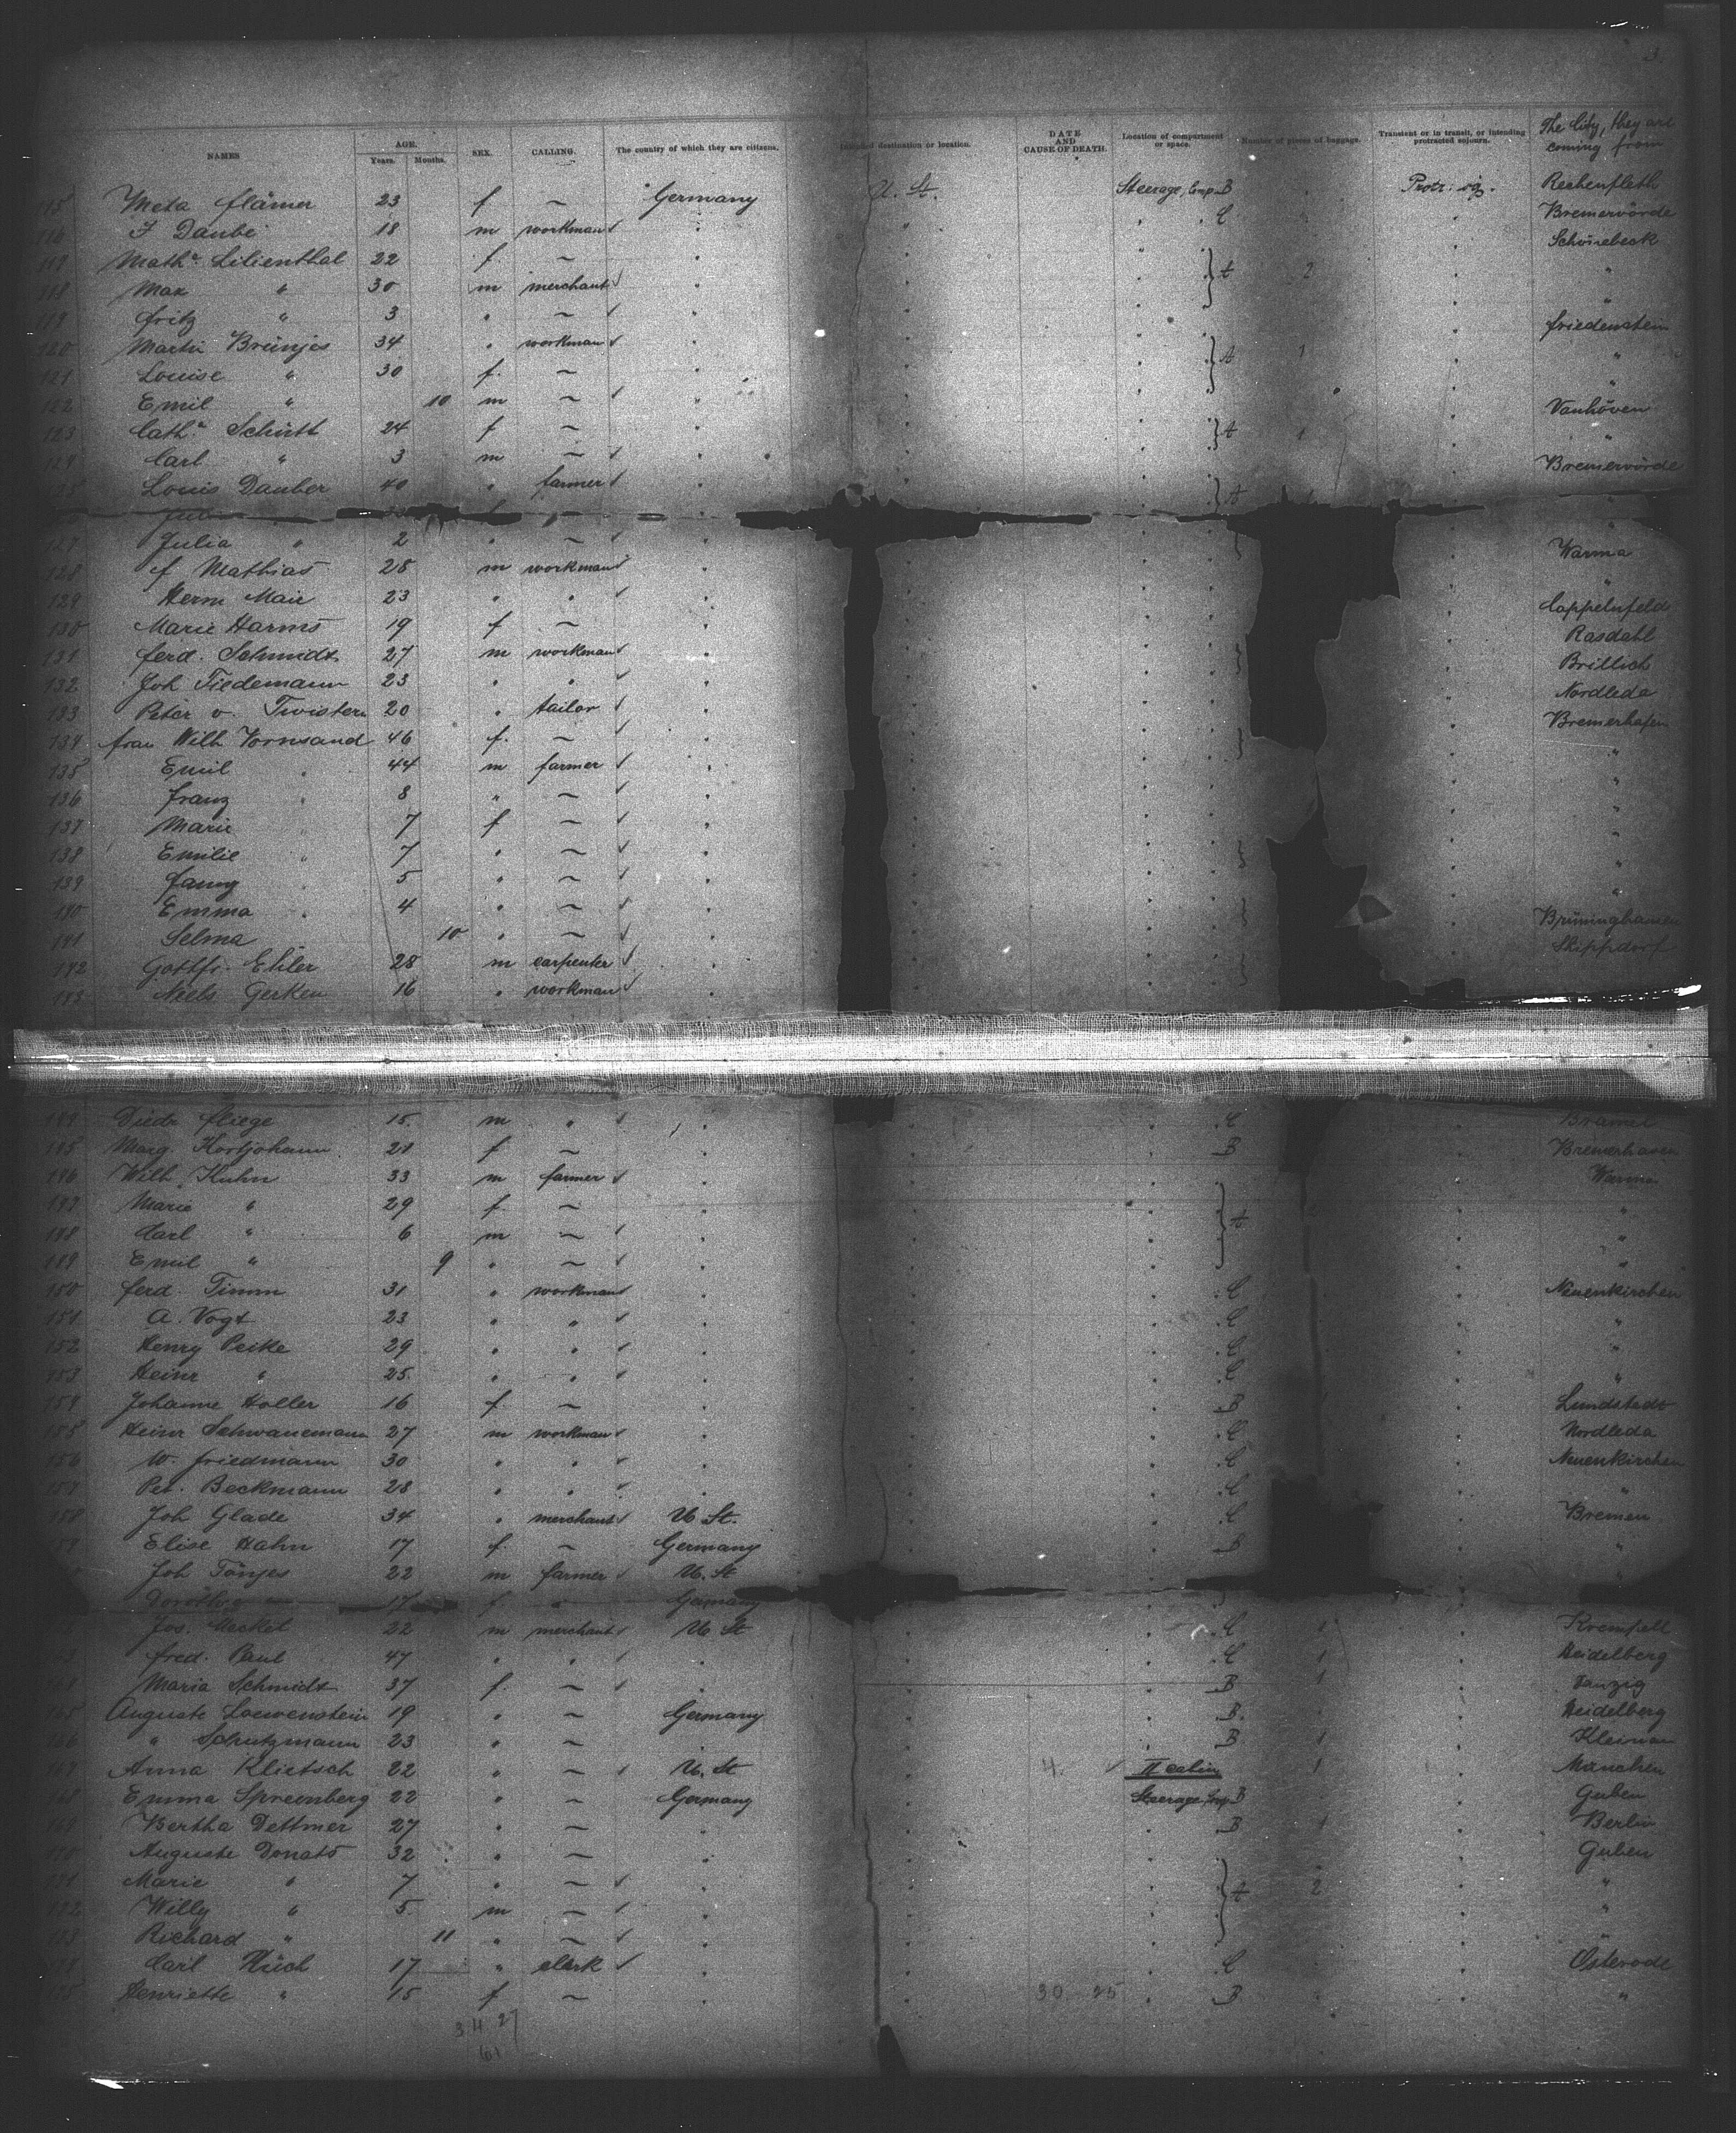 3
NAMES AGE. Years. Months. SEX. CALLING. The country of which they are citizens. Intended destination or location. DATE AND CAUSE OF DEATH. Location of compartment or space. Number of pieces of baggage. Transient or in transit, or intending protracted sojourn. The City, they are coming from
115 Meta Flämer 23 f ~ Germany U. St. Steerage, Comp. B Protr: Rechenfleth
116 F Daube 18 m workman " C Bremervörde
117 Math. Lilienthal 22 f. ~ Schönebeck
118 Max " 30 m merchant } A 2 "
119 Fritz " 3 " ~ "
120 Martin Brünjes 34 " workman Friedenstein
121 Louise " 30 f. ~ } A 1 "
122 Emil " 10 m ~ "
123 Cath. Schütt 24 f ~ } A 1 Vanhöven
124 Carl " 3 m ~ "
125 Louis Dauber 40 " farmer } A Bremervörde
127 Julia " 2 " ~ "
128 F Mathias 28 m workman Warma
129 Herm Mair 23 " " "
130 Marie Harms 19 f ~ Cappelnfeld
131 Ferd. Schmidt 27 m workman Rasdahl
132 Joh Tiedemann 23 " " Brillich
133 Peter v. Twistern 20 " tailor Nordleda
134 Frau Wilh Vornsand 46 f. ~ Bremerhafen
135 Emil " 44 m farmer "
136 Franz " 8 " ~ "
137 Marie " 7 f ~ "
138 Emilie " 7 " ~ "
139 Fanny " 5 " ~ "
140 Emma " 4 " ~ "
141 Selma 10 " ~
142 Gottfr. Ehler 28 m carpenter Brüninghausen
143 Niels Gerken 16 " workman Skippdorf
144 Diedr Fliege 15 m " C Bramel
145 Marg. Kortjohann 21 f ~ B Bremerhaven
146 Wilh Kuhn 33 m farmer Warma
147 Marie " 29 f. ~ } A "
148 Carl " 6 m ~ "
149 Emil " 9 " ~ "
150 Ferd. Timm 31 " workman C Neuenkirchen
151 A. Vogt 23 " " C "
152 Henry Peike 29 " " C "
153 Heinr " 25 " " C "
154 Johanne Holler 16 f. ~ B Lundstedt
155 Heinr Schwanemann 27 m workman C Nordleda
156 W. Friedmann 30 " " C Neuenkirchen
157 Pet. Beckmann 28 " " C "
158 Joh Glade 34 " merchant U. St. C Bremen
159 Elise Hahn 17 f. ~ Germany B "
Joh Tönjes 22 m farmer U. St "
Dorothea 17 f Germany
Jos. Meckel 22 m merchant U. St C 1 Krempell
Fred. Paul 47 " " C 1 Heidelberg
Maria Schmidt 37 f. ~ B 1 Danzig
165 Auguste Loewenstein 19 " ~ Germany B. Heidelberg
166 " Schutzmann 23 " ~ B 1 Kleinau
167 Anna Klietsch 22 " ~ U. St 4. II cabin 1 München
168 Emma Spreenberg 22 " ~ Germany Steerage Comp. B Guben
169 Bertha Dettmer 27 " ~ B 1 Berlin
170 Auguste Donato 32 " ~ Guben
171 Marie " 7 " ~ } A 2 "
172 Willy " 5 m ~ "
173 Richard " 11 " ~ "
174 Carl Hüch 17 " clerk C Osterode
175 Henriette " 15 f ~ 30. 25 B "
34 27
61